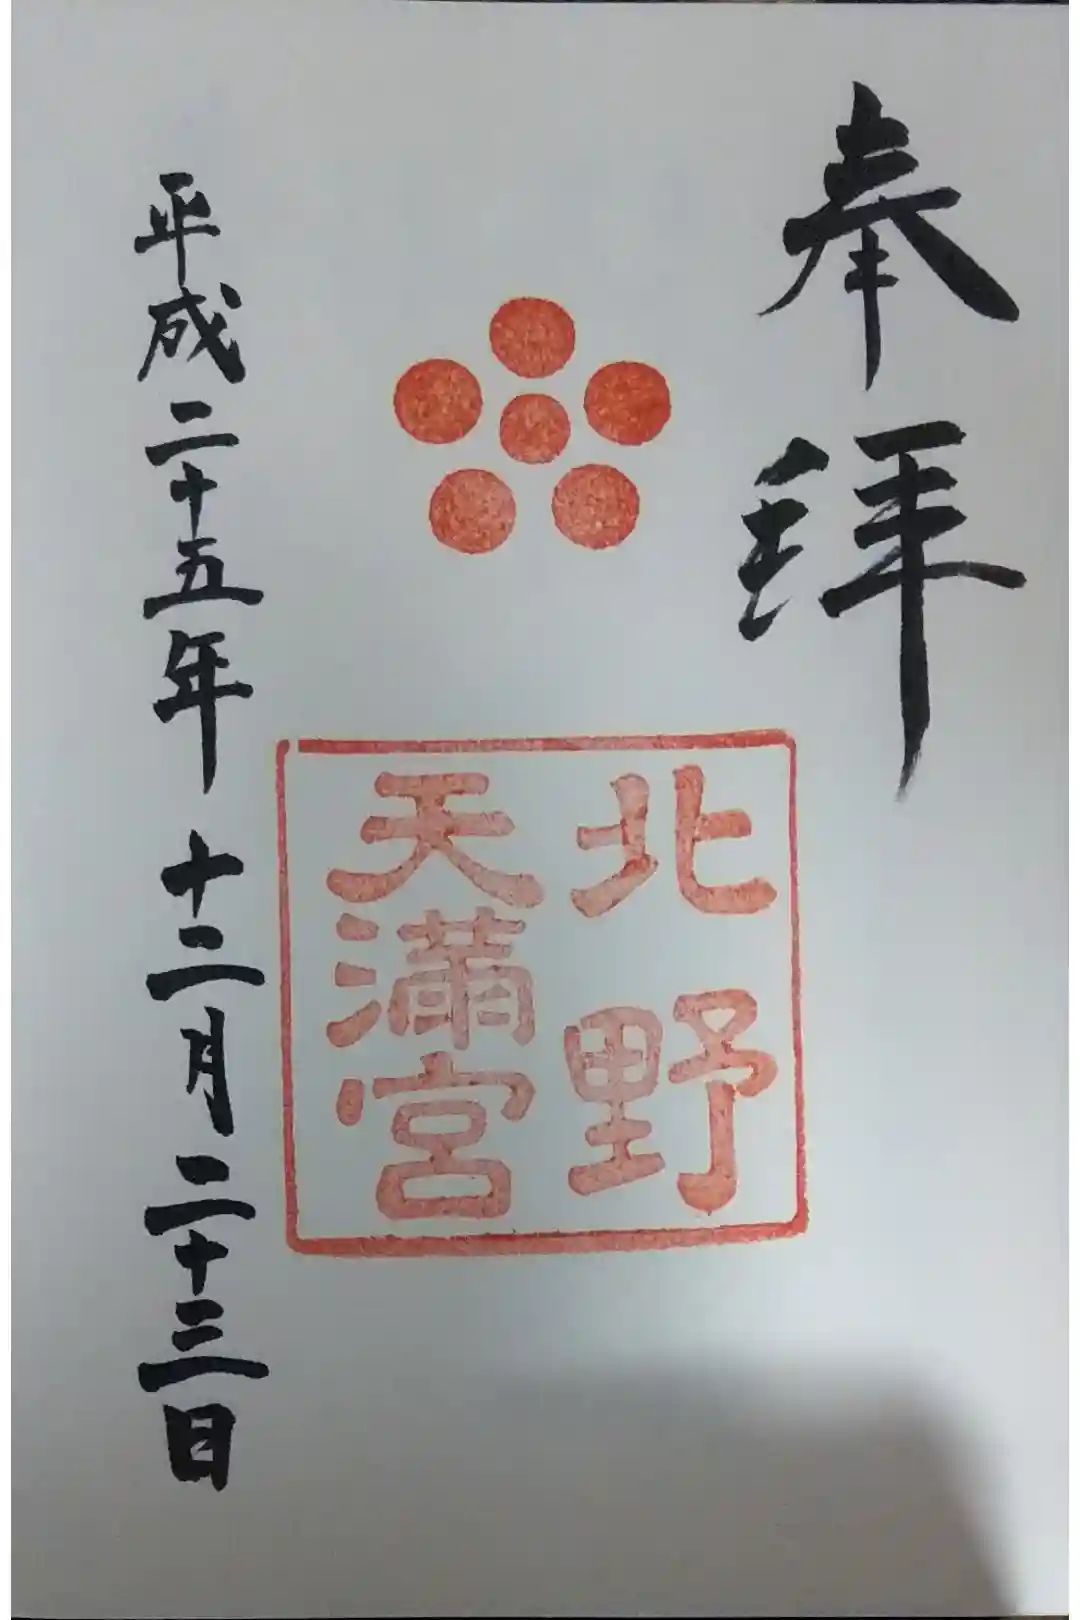 奉拝
北野
天満宮
平成二十五年十二月二十三日